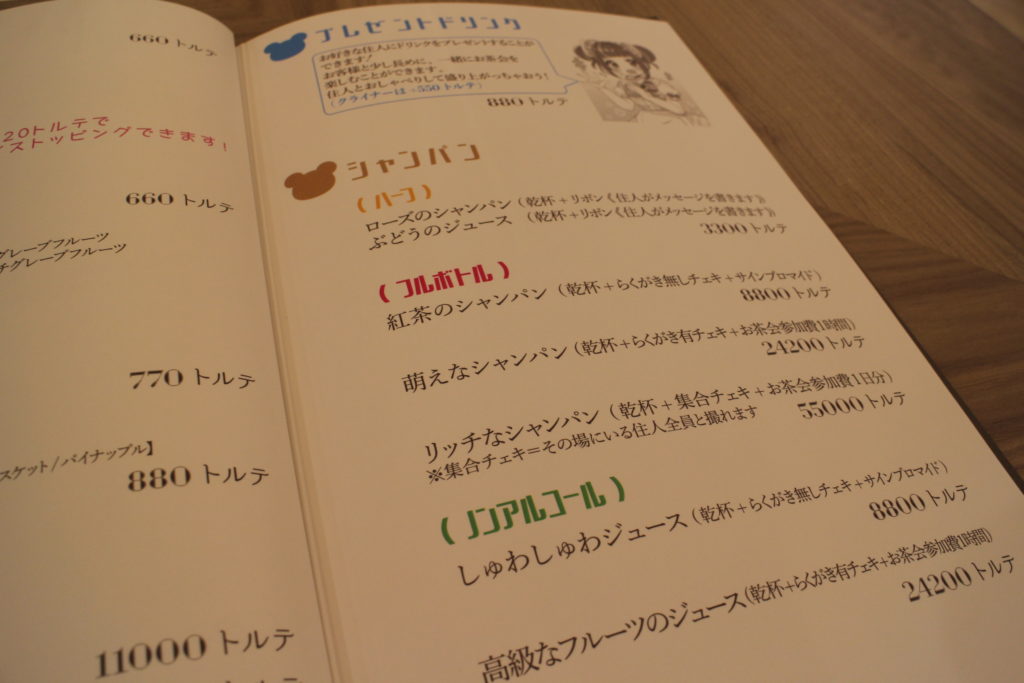 660 トルテ
20トルテで
ストッピングできます!
660 トルテ
グレープフルーツ
グレープフルーツ
770 トルテ
スケット/パイナップル】
880 トルテ
11000 トルテ
プレゼントドリンク
お好きな住人にドリンクをプレゼントすることが
できます!
お客様と少し長めに、一緒にお茶会を
楽しむことができます。
住人とおしゃべりして盛り上がっちゃおう!
(クライナーは+550トルテ)
880 トルテ
シャンパン
(ハーフ)
ローズのシャンパン (乾杯+リボン《住人がメッセージを書きます》)
ぶどうのジュース (乾杯+リボン《住人がメッセージを書きます》)
3300トルテ
(フルボトル)
紅茶のシャンパン (乾杯+らくがき無しチェキ+サインブロマイド)
8800トルテ
萌えなシャンパン (乾杯+らくがき有チェキ+お茶会参加費1時間)
24200トルテ
リッチなシャンパン (乾杯+集合チェキ+お茶会参加費1日分)
※集合チェキ=その場にいる住人全員と撮れます
55000トルテ
(ノンアルコール)
しゅわしゅわジュース (乾杯+らくがき無しチェキ+サインブロマイド)
8800トルテ
高級なフルーツのジュース (乾杯+らくがき有チェキ+お茶会参加費1時間)
24200トルテ